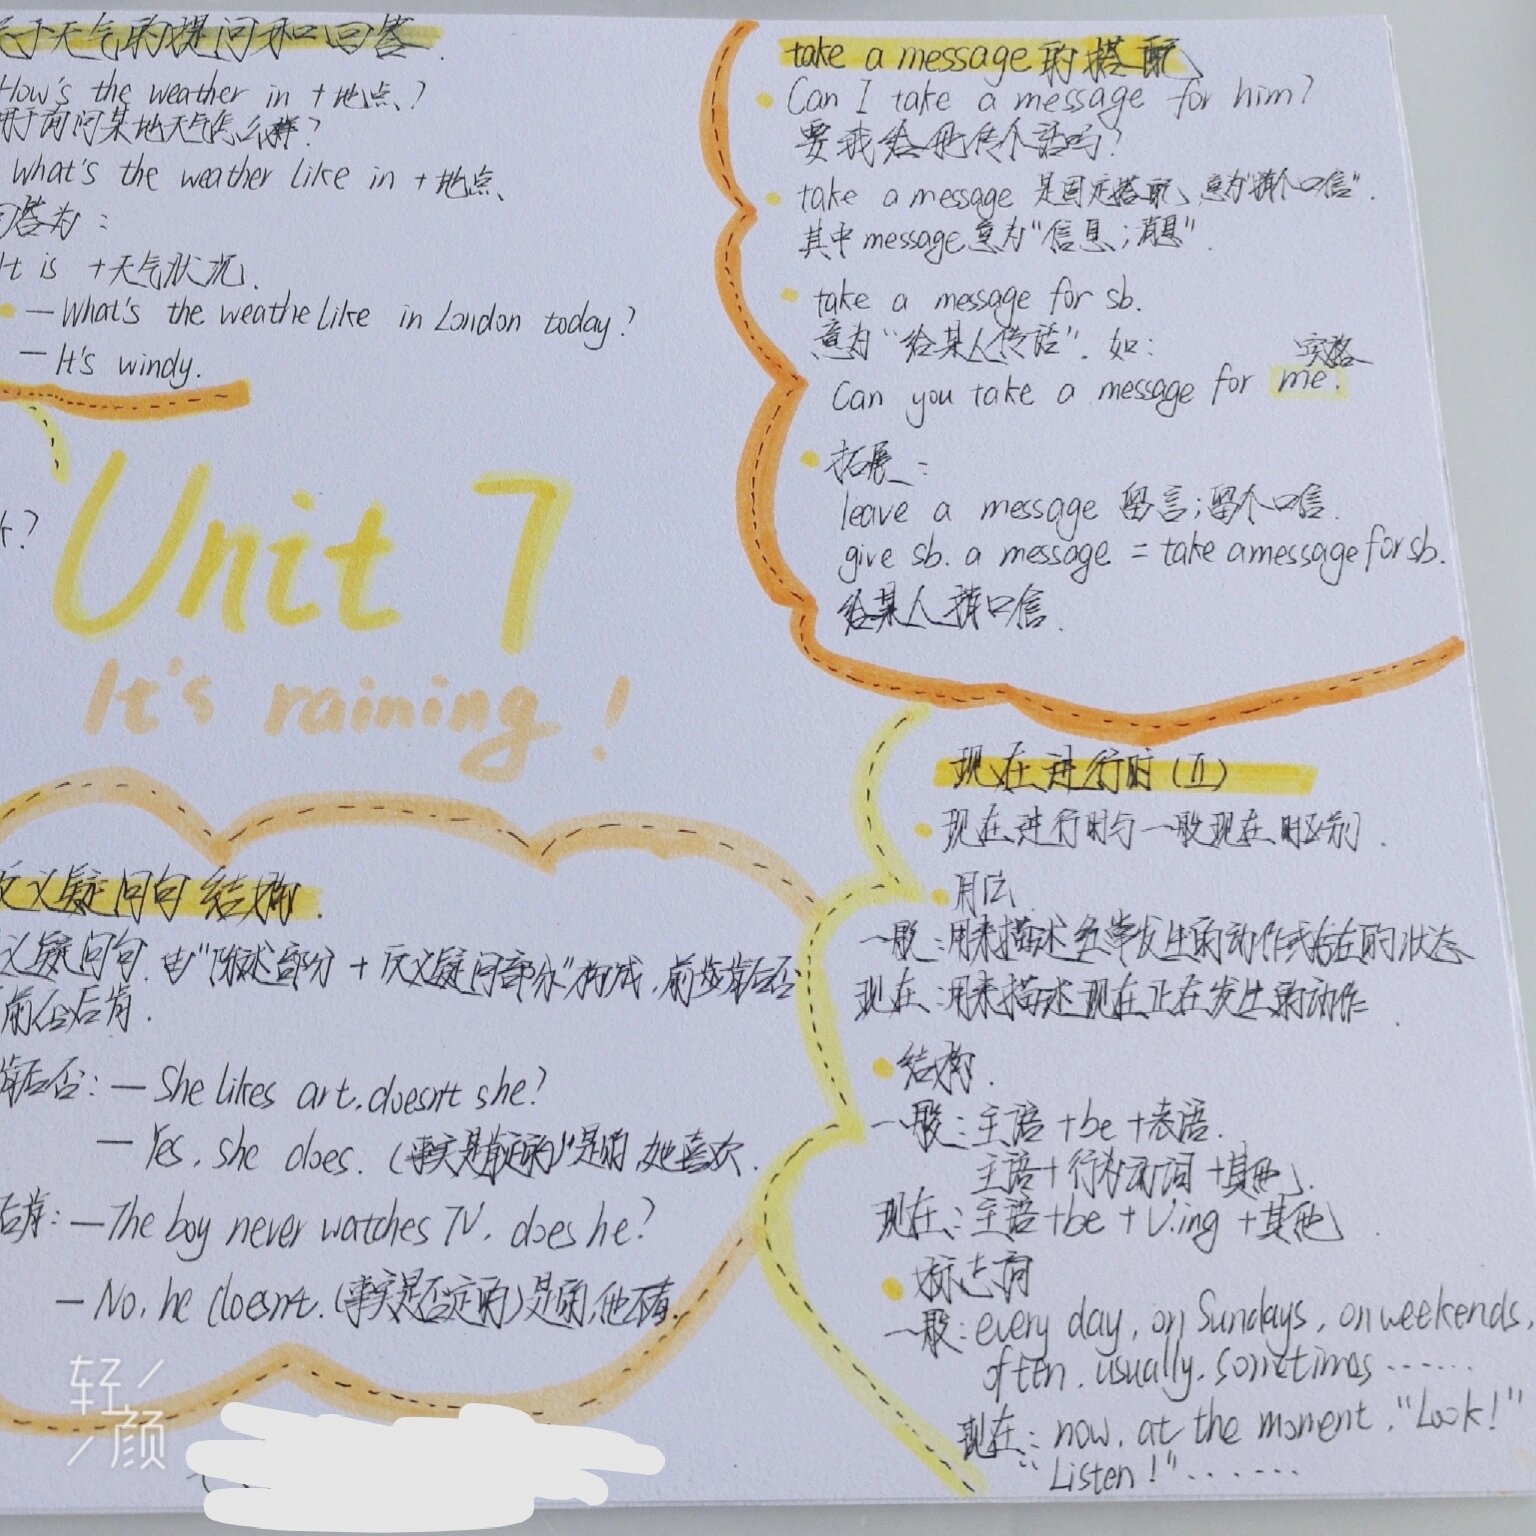 关于天气的提问和回答.
How's the weather in + 地点?
用于询问某地天气怎么样?
What's the weather like in + 地点、
回答为:
It is + 天气状况.
— What's the weathe like in London today?
— It's windy.
Unit 7
It's raining!
反义疑问句结构.
义疑问句.由"陈述部分 + 反义疑问部分"构成,前肯后否
前否后肯.
肯后否: — She likes art. doesn't she?
— Yes, she does. (事实是肯定的)"是的,她喜欢.
后肯: — The boy never watches TV. does he?
— No, he doesn't. (事实是否定的) 是的,他不看.
take a message 的搭配
Can I take a message for him?
要我给他传个话吗?
take a message 是固定搭配、意为"捎个口信".
其中 message 意为"信息;消息".
take a message for sb.
意为"给某人传话". 如:
宾格
Can you take a message for me.
拓展:
leave a message 留言;留个口信.
give sb. a message = take a message for sb.
给某人捎口信.
现在进行时(II)
现在进行时与一般现在时区别.
用法
一般:用来描述经常发生的动作或存在的状态
现在:用来描述现在正在发生的动作.
结构.
一般:主语 + be + 表语.
主语 + 行为动词 + 其他.
现在:主语 + be + V.ing + 其他.
标志词
一般: every day, on Sundays, on weekends,
often, usually, sometimes ......
现在: now, at the moment, "Look!"
"Listen!" ......
轻
颜